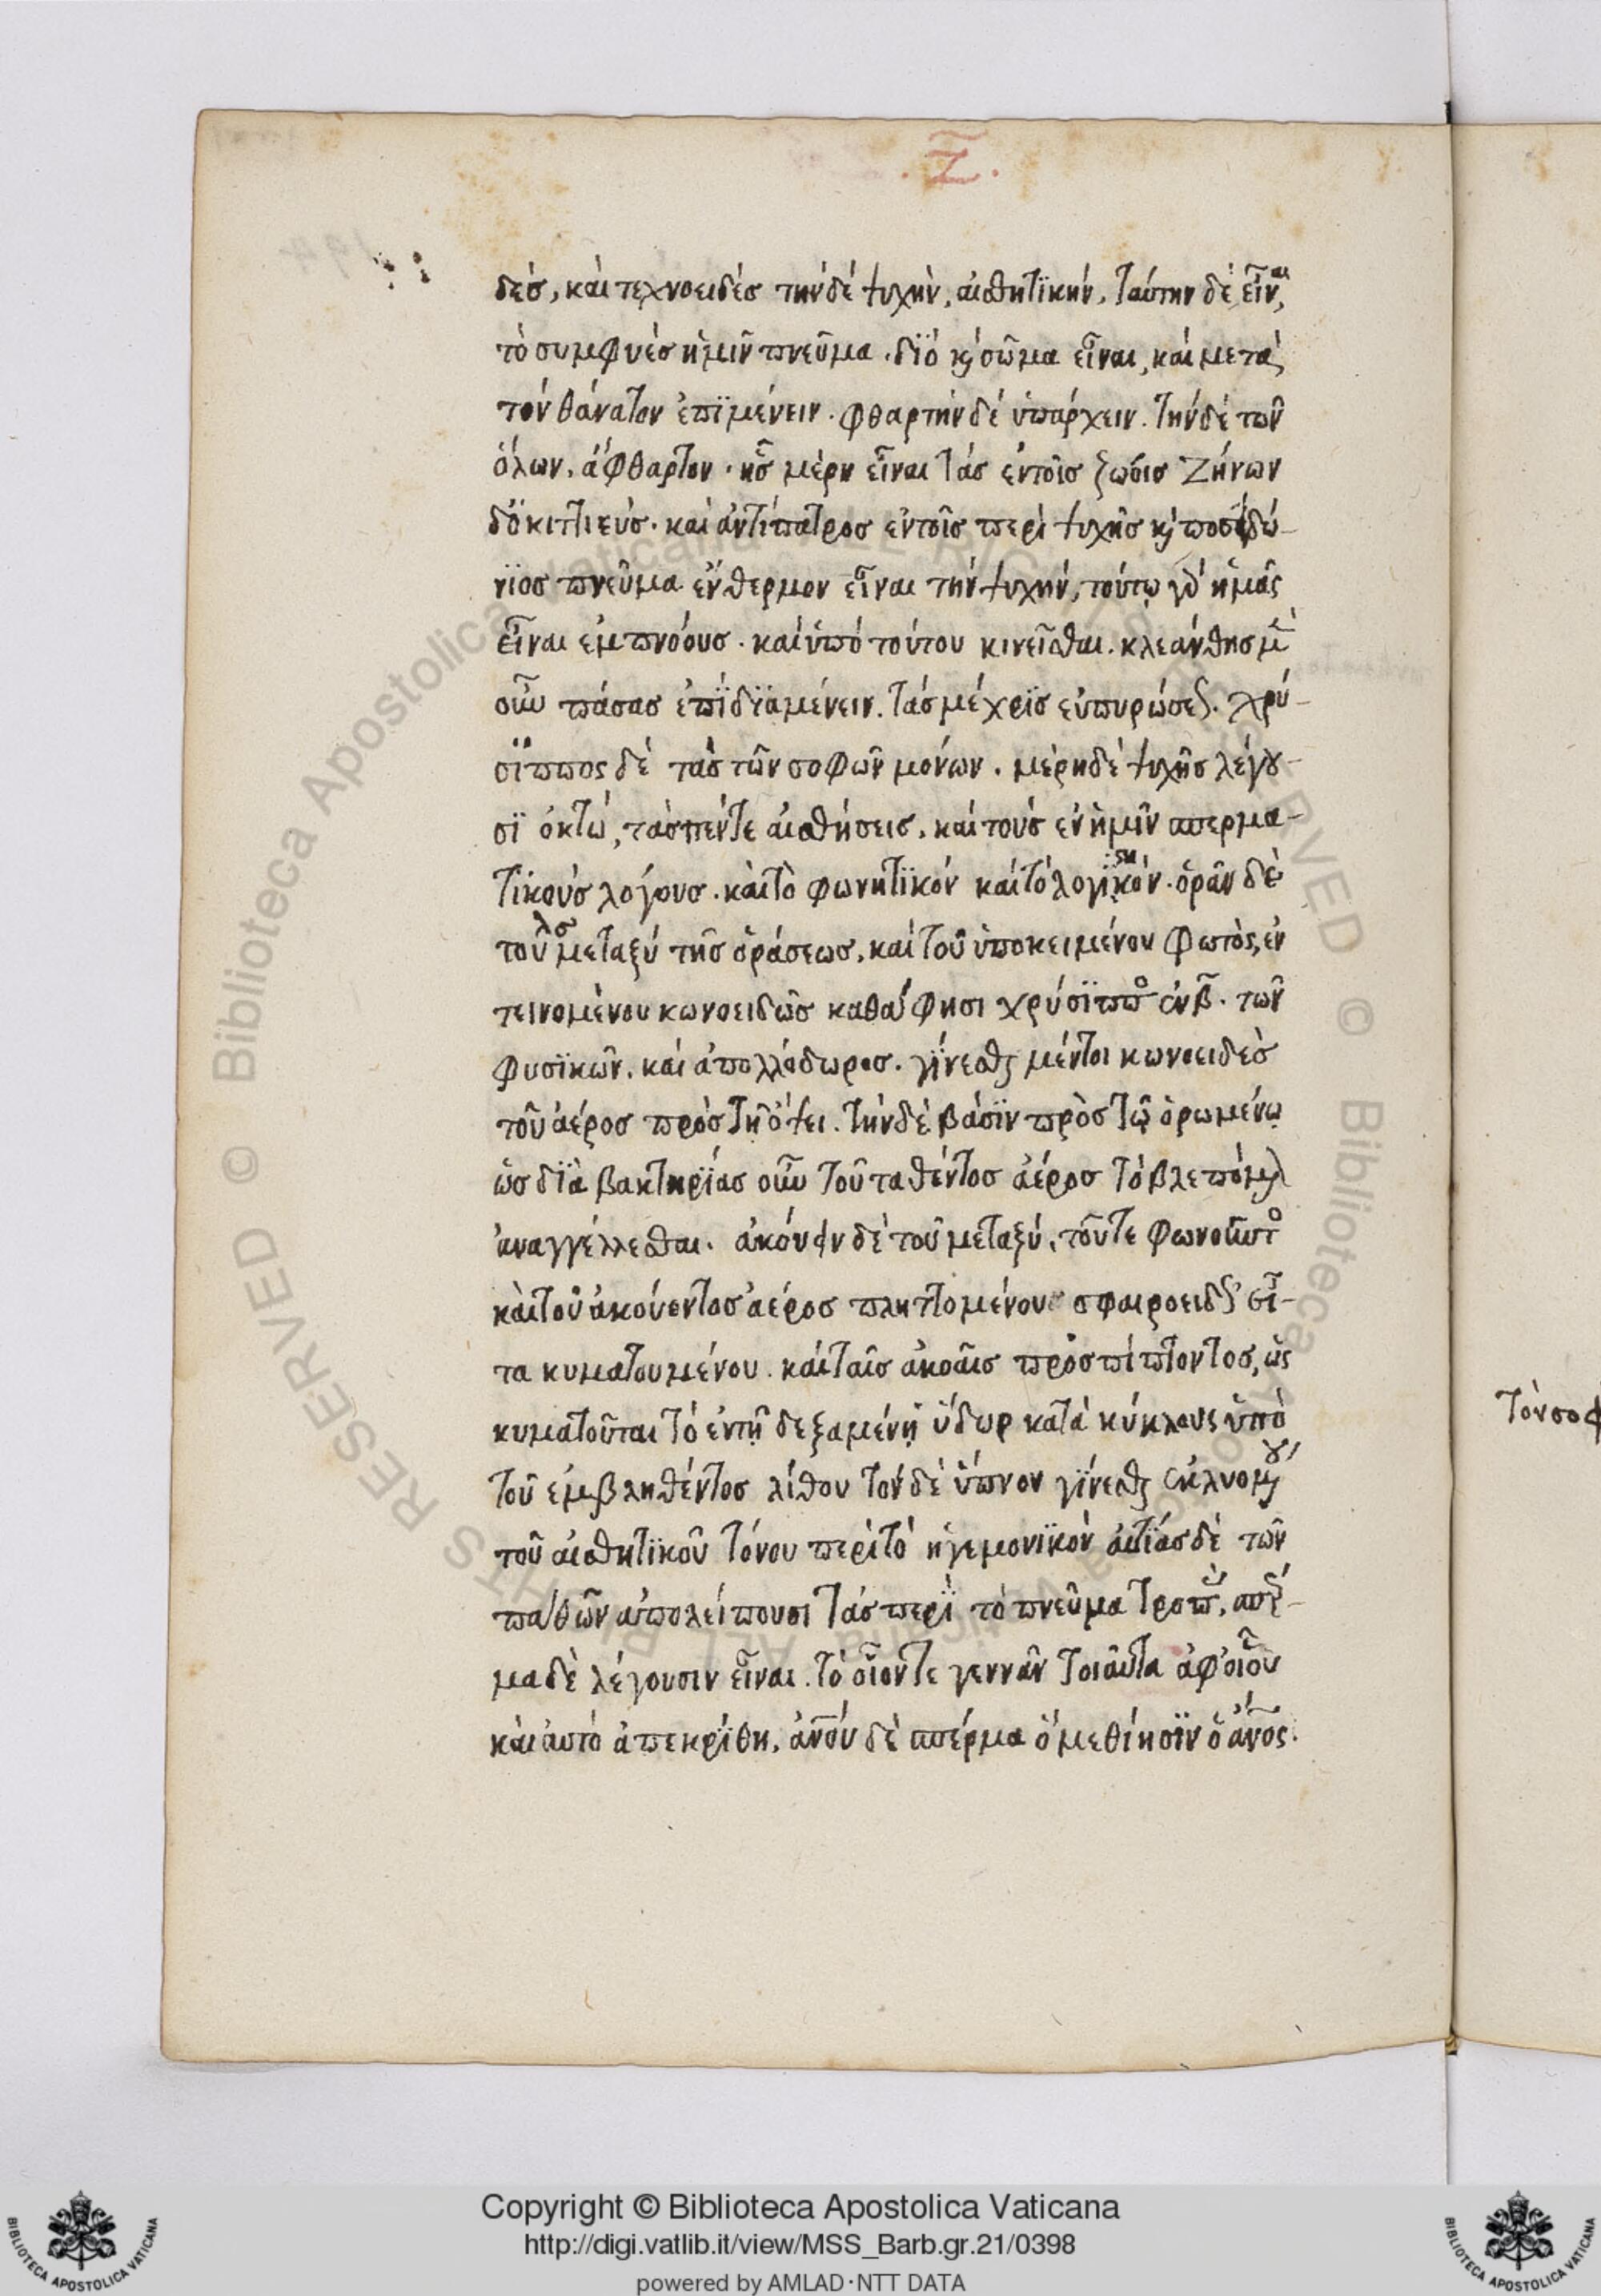 .Ζ̅.
δές, καὶ τεχνοειδές τὴν δὲ ψυχὴν, αἰσθητϊκήν, ταύτην δὲ εἶναι
τὸ συμφυὲς ἡμῖν πνεῦμα. δϊό κ̀ σῶμα εἶναι, καὶ μετὰ
τὸν θάνατον ἐπϊμένειν. φθαρτὴν δὲ ὑπάρχειν. τὴν δὲ τῶν
ὅλων, ἄφθαρτον. ἧς μέρη εἶναι τὰς ἐν τοῖς ζώοις Ζήνων
δ' ὁ κιττιεύς. καὶ ἀντίπατρος ἐν τοῖς περὶ ψυχῆς κ̀ ποσειδώ-
νϊος πνεῦμα ἔνθερμον εἶναι τὴν ψυχήν, τούτῳ γὰρ ἡμᾶς
εἶναι ἐμπνόους. καὶ ὑπὸ τούτου κινεῖσθαι. κλεάνθης μὲν
οὖν πάσας ἐπϊδϊαμένειν. τὰς μέχρϊς ἐυπυρώσεως. χρύ-
σϊππος δὲ τὰς τῶν σοφῶν μόνων. μέρη δὲ ψυχῆς λέγου-
σϊ ὀκτώ, τὰς πέντε αἰσθήσεις, καὶ τοὺς ἐν ἡμῖν σπερμα-
τϊκοὺς λόγους. καὶ τὸ φωνητϊκόν καὶ τὸ λογϊστικόν. ὁρᾶν δὲ
τοῦ μεταξύ τῆς ὁράσεως, καὶ τοῦ ὑποκειμένου φωτὸς, ἐν
τεινομένου κωνοειδῶς καθά φησι χρύσϊππος ἐν β. τῶν
φυσϊκῶν. καὶ ἀπολλόδωρος. γίνεσθαι μέντοι κωνοειδὲς
τοῦ ἀέρος πρὸς τῇ ὄψει. τὴν δὲ βάσϊν πρὸς τῷ ὁρωμένῳ
ὡς δϊὰ βακτηρϊάς οὖν τοῦ ταθέντος ἀέρος τὸ βλεπόμενον
ἀναγγέλλεσθαι. ἀκούειν δὲ τοῦ μεταξύ, τοῦ τε φωνοῦντος
καὶ τοῦ ἀκούοντος ἀέρος πληττομένου σφαιροειδῶς εἶ-
τα κυματουμένου. καὶ ταῖς ἀκοαῖς προσπίπτοντος, ὡς
κυματοῦται τὸ ἐν τῇ δεξαμένῃ ὕδωρ κατὰ κύκλους ὑπὸ
τοῦ ἐμβληθέντος λίθου τὸν δὲ ὕπνον γίνεσθαι ἐκλυομένου
τοῦ αἰσθητϊκοῦ τόνου περὶ τὸ ἡγεμονϊκὸν αἰτϊάς δὲ τῶν
παθῶν ἀπολείπουσι τὰς περὶ τὸ πνεῦμα τροπὰς, σπέρ-
μα δὲ λέγουσιν εἶναι. τὸ οἷόν τε γεννᾶν τοιαῦτα ἀφ' οἵου
καὶ αὐτό ἀπεκρίθη, ἀνοῦ δὲ σπέρμα ὃ μεθίησϊν ὁ ἄνος.
Copyright © Biblioteca Apostolica Vaticana
http://digi.vatlib.it/view/MSS_Barb.gr.21/0398
powered by AMLAD·NTT DATA